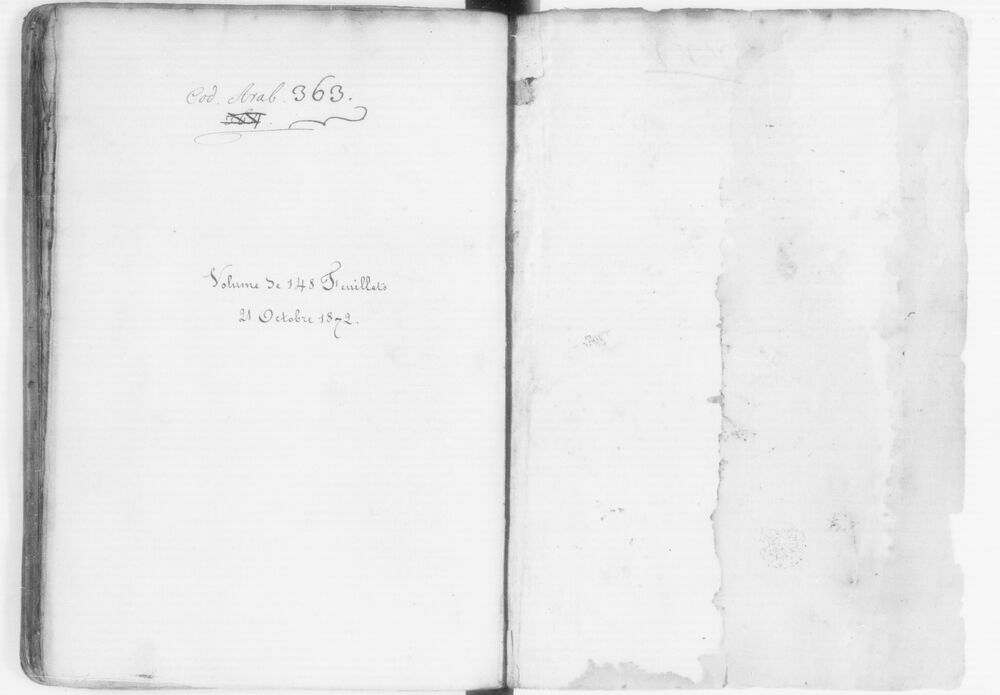 Cod. Arab. 363.
Volume de 148 Feuillets
21 Octobre 1872.